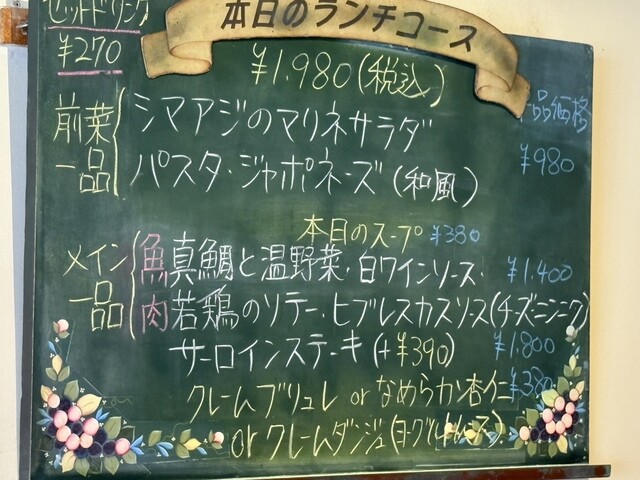 セットドリンク
¥270
本日のランチコース
¥1.980(税込)
品価格
前菜一品
シマアジのマリネサラダ
パスタ・ジャポネーズ(和風)
¥980
本日のスープ ¥380
メイン一品
魚 真鯛と温野菜・白ワインソース・ ¥1.400
肉 若鶏のソテー・ヒブレスカスソース(チーズニンニク)
サーロインステーキ(+¥390) ¥1.800
クレームブリュレ or なめらカン杏仁 ¥380
or クレームダンジュ(ヨーグル